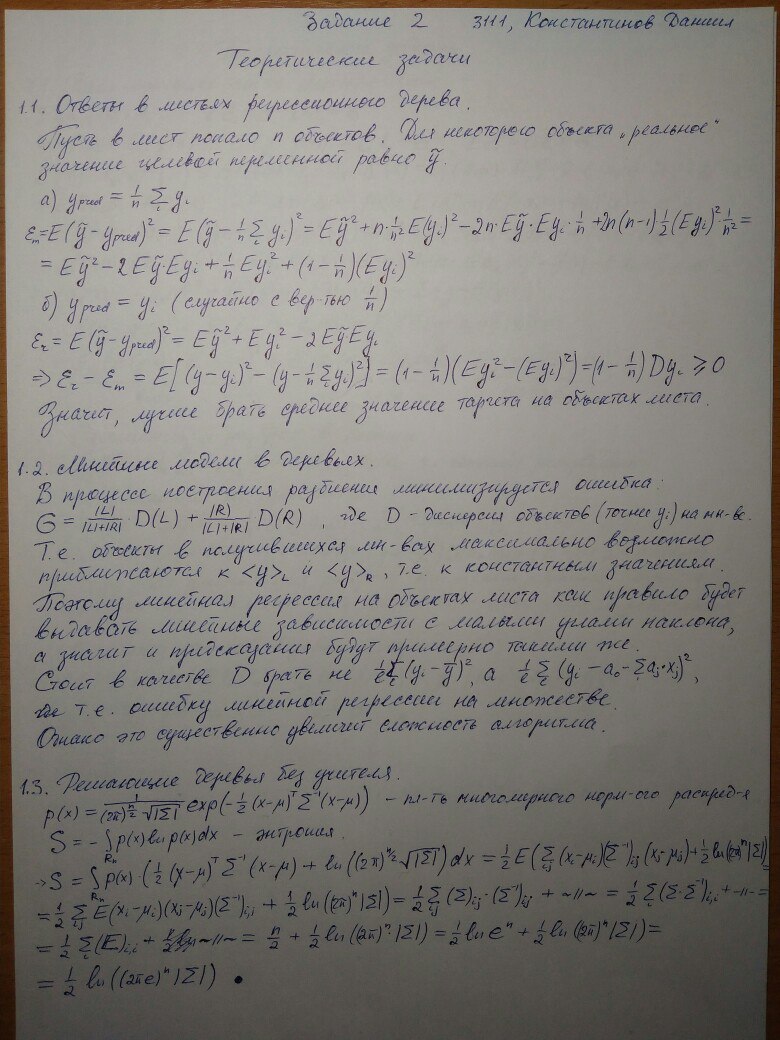 Задание 2 3111, Константинов Даниил
Теоретические задачи
1.1. Ответы в листьях регрессионного дерева.
Пусть в лист попало n объектов. Для некоторого объекта „реальное"
значение целевой переменной равно ỹ.
а) y_pred = 1/n Σ_i y_i
ε_m = E(ỹ - y_pred)² = E(ỹ - 1/n Σ_i y_i)² = Eỹ² + n·1/n² E(y_i)² - 2n·Eỹ·Ey_i·1/n + 2n(n-1)1/2(Ey_i)²1/n² =
= Eỹ² - 2EỹEy_i + 1/n Ey_i² + (1 - 1/n)(Ey_i)²
б) y_pred = y_i (случайно с вер-тью 1/n)
ε_r = E(ỹ - y_pred)² = Eỹ² + Ey_i² - 2EỹEy_i
⇒ ε_r - ε_m = E[(y - y_i)² - (y - 1/n Σ_i y_i)²] = (1 - 1/n)(Ey_i² - (Ey_i)²) = (1 - 1/n)Dy_i ≥ 0
Значит, лучше брать среднее значение таргета на объектах листа.
1.2. Линейные модели в деревьях.
В процессе построения разбиения минимизируется ошибка:
G = |L|/(|L|+|R|) · D(L) + |R|/(|L|+|R|) D(R), где D - дисперсия объектов (точнее y_i) на мн-ве.
Т.е. объекты в получившихся мн-вах максимально возможно
приближаются к <y>_L и <y>_R, т.е. к константным значениям.
Поэтому линейная регрессия на объектах листа как правило будет
выдавать линейные зависимости с малыми углами наклона,
а значит и предсказания будут примерно такими же.
Стоит в качестве D брать не 1/ℓ Σ_i (y_i - ȳ)², а 1/ℓ Σ_i (y_i - a_0 - Σ a_j·x_j)²,
т.е. ошибку линейной регрессии на множестве.
Однако это существенно увеличит сложность алгоритма.
1.3. Решающие деревья без учителя.
p(x) = 1/((2π)^{n/2} √|Σ|) exp(-1/2 (x-μ)^T Σ^{-1} (x-μ)) - пл-ть многомерного норм-ого распред-я
S = -∫_{R_n} p(x) ln p(x) dx - энтропия.
→ S = ∫_{R_n} p(x)·(1/2 (x-μ)^T Σ^{-1} (x-μ) + ln((2π)^{n/2} √|Σ|) dx = 1/2 E(Σ_{ij} (x_i-μ_i)(Σ^{-1})_{ij} (x_j-μ_j) + 1/2 ln((2π)^n |Σ|) =
= 1/2 Σ_{ij} E(x_i-μ_i)(x_j-μ_j)(Σ^{-1})_{i,j} + 1/2 ln((2π)^n |Σ|) = 1/2 Σ_{ij} (Σ)_{ij}·(Σ^{-1})_{ij} + ~||~ = 1/2 Σ_i (Σ·Σ^{-1})_{i,i} + -||- =
= 1/2 Σ_i (E)_{i,i} + ~||~ = n/2 + 1/2 ln((2π)^n·|Σ|) = 1/2 ln e^n + 1/2 ln((2π)^n |Σ|) =
= 1/2 ln((2πe)^n |Σ|) •